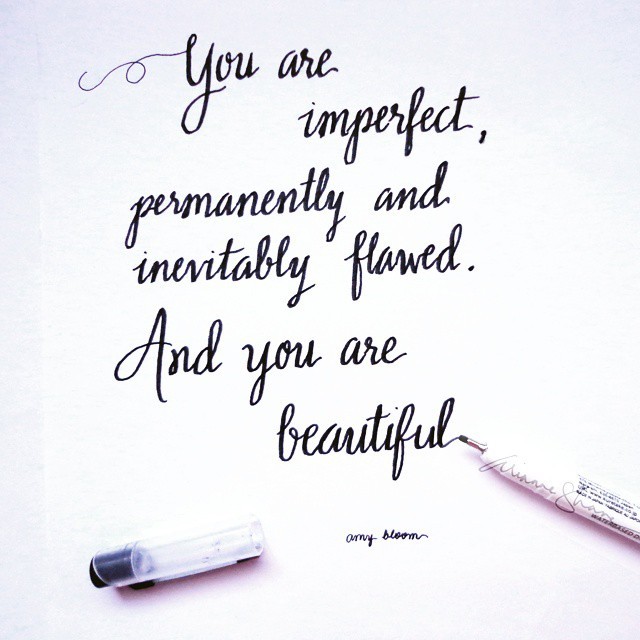 You are
imperfect,
permanently and
inevitably flawed.
And you are
beautiful
amy bloom